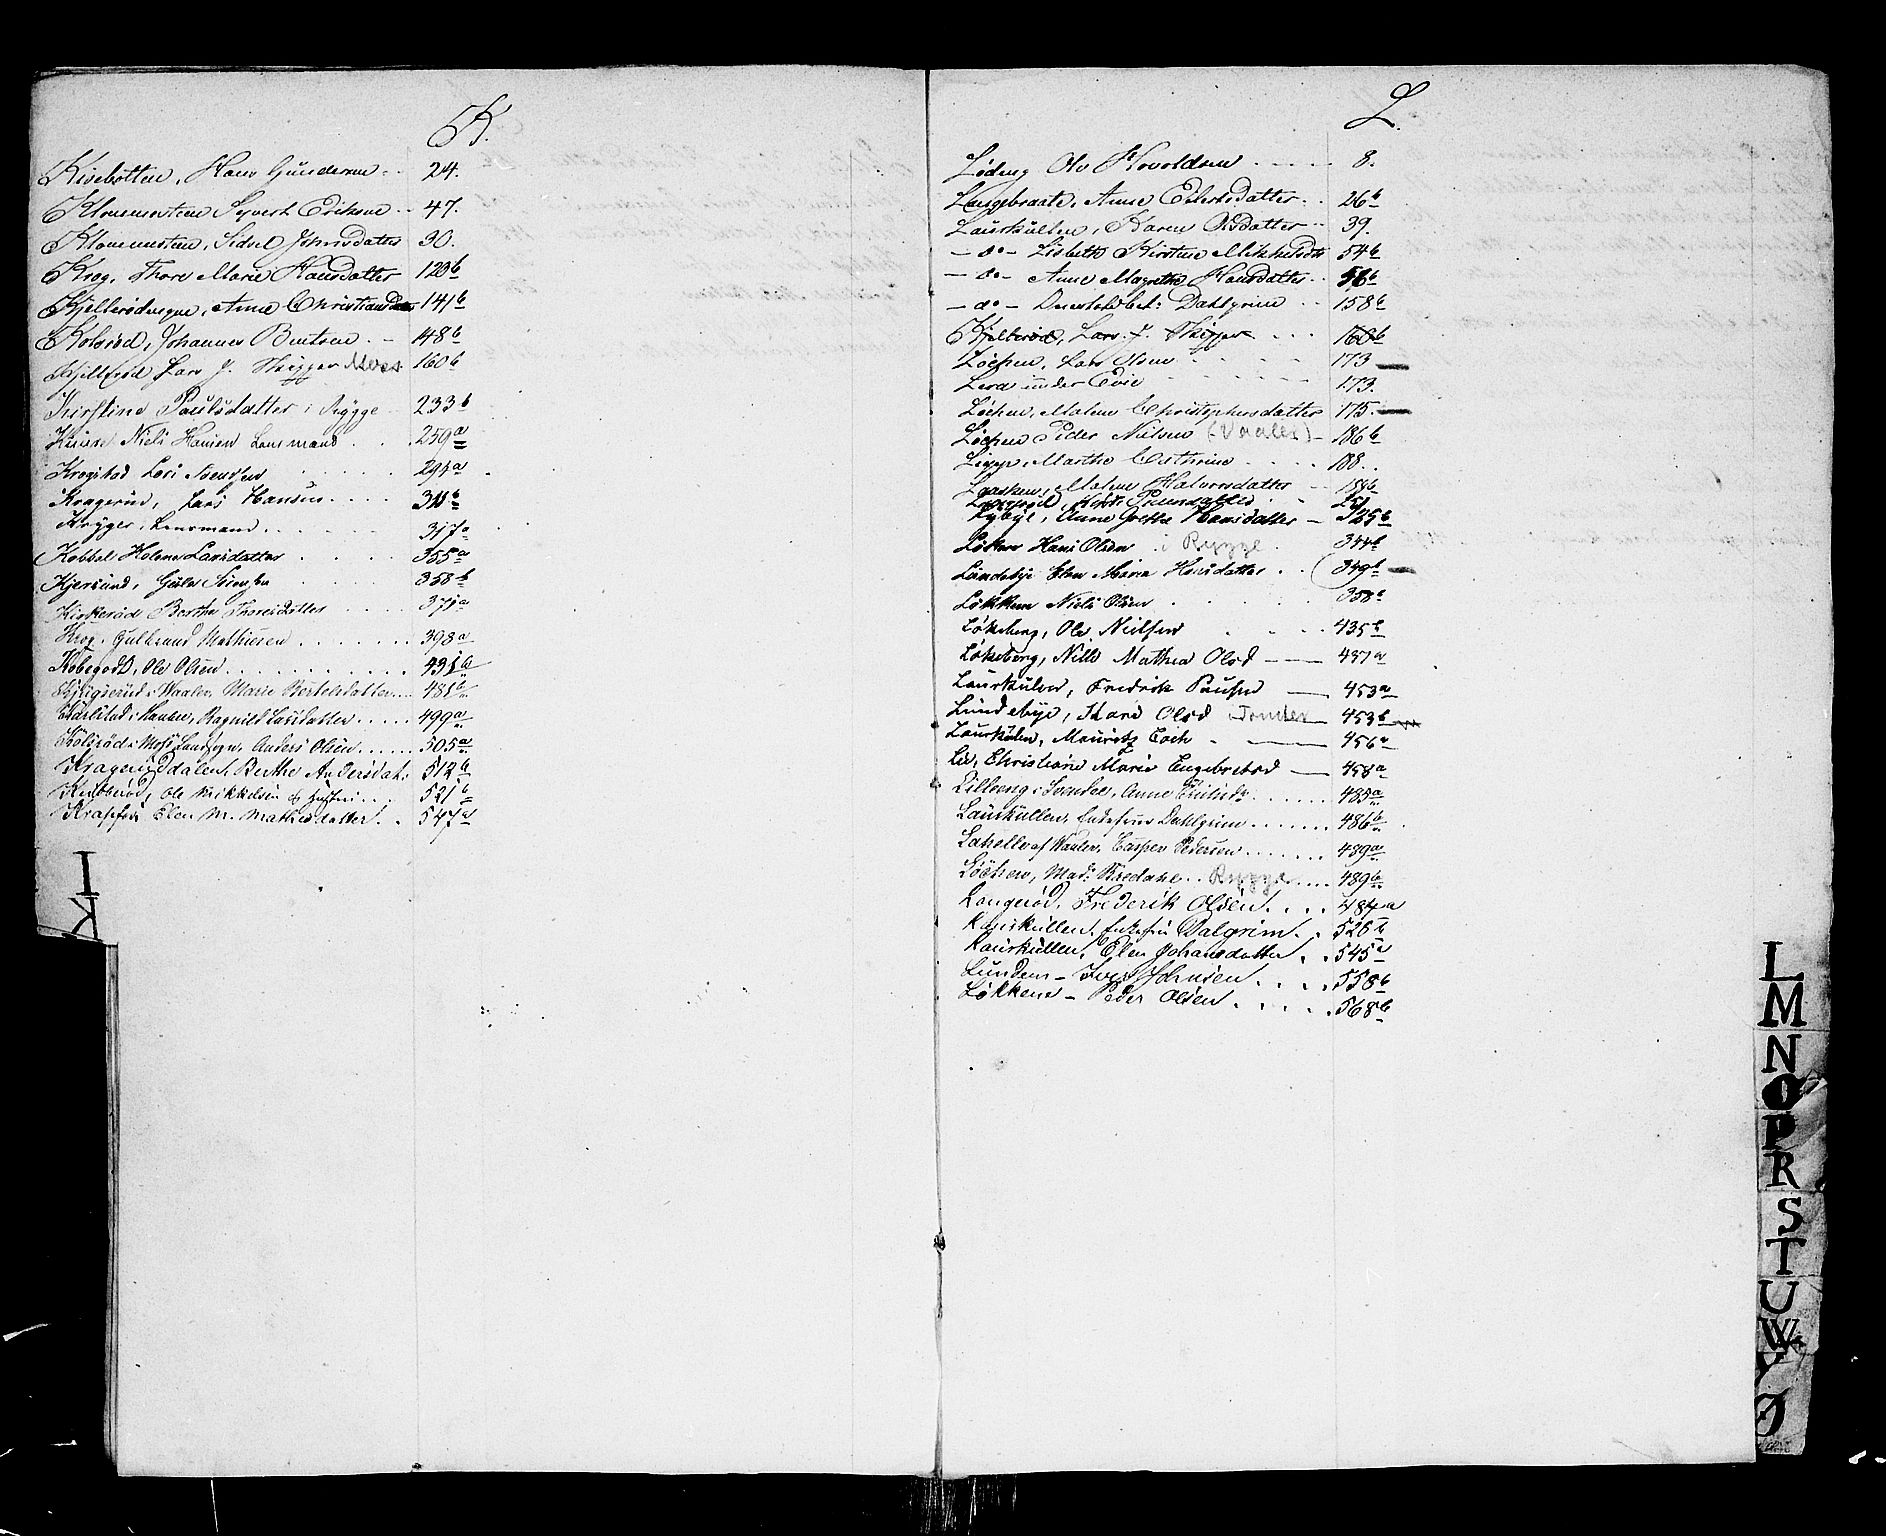 K.
Kisebotten, Hans Gundersen 24.
Klommesteen Syvert Eriksen 47.
Klommesteen, Sidsel Jensdatter 30.
Krog, Thore Marie Hansdatter 120b
Anne Christiansd 141b
Kolsröd, Johannes Bentsen 148b
Kjellerød Lars J. Skipper Moss 160b
Kirstine Paulsdatter i Rygge 233b
Niels Hansen Lensmand 259a
Krogstad Lars Svendsen 291a
Kragerud, Lars Hansen 311b
Krÿger, Lensmand 317a
Kobbel Helene Larsdatter 355a
Kjersund, Gule Sörensen 358b
Kirkeröd Berthe Thoresdatter 371a
Krog, Gulbrand Mathiesen 398a
Kobegodt, Ole Olsen 431b
i Waaler, Marie Bertelsdatter 481b
Karlstad i Haabøl, Ragnild Larsdatter 499a
Kolsröd i Moss Landsogn, Anders Olsen 505a
Krageruddalen, Berthe Andersdat. 512b
Ole Mikkelsen & hustru 521b
Elen M. Mathisdatter 547a
I
K
L.
Lödeng Ole Hovoldsen 8.
Langebraate, Anne Eilertsdatter 26b
Laurkullen, Karen Olsdatter 39.
- do - Lisbeth Kirstine Mikkelsdtr 54b
- do - Anne Magrethe Hansdatter 56b
- do - Dahlgrün 158b
Kjellerød, Lars J. Skipper 160b
Löchen, Lars Olsen 173
Lera under Evie 173.
Löchen, Malene Christophersdatter 175.
Löchen Peder Nielsen (Vaaler) 186b
Marthe Cathrine 188.
Malene Halvorsdatter
251
Lybye, Anne Grethe Hansdatter 325b
Løken Hans Olsen i Rygge 344b
Lundebye Elen Maria Hansdatter 349b
Løkken Niels Olsen 358a
Lökeberg, Ole Nielsen 435b
Løkeberg, Nille Mathea Olsd 437a
Laurkulen, Fredrik Paulsen 453a
Lundebye, Kari Olsd Tomter 453b
Laurkulen, Mauritz Coch 456a
Lie, Christiane Marie Engebretsd 458a
Lilleeng i Svendal, Anne 485a
Laurkullen, Enkefrue Dahlgrün 486b
Labelle af Waaler, Casper Pedersen 489a
Löchen, Mad. Bredahl Rygge 489b
Langeröd, Frederik Olsen 484a
Laurkullen, Enkefru Dalgrim 526b
Laurkullen, Elen Johansdatter 545a
Lunden - Iver Johnsen 558b
Løkken - Peder Olsen 568b
L
M
N
O
P
R
S
T
U
W
Y
Ø